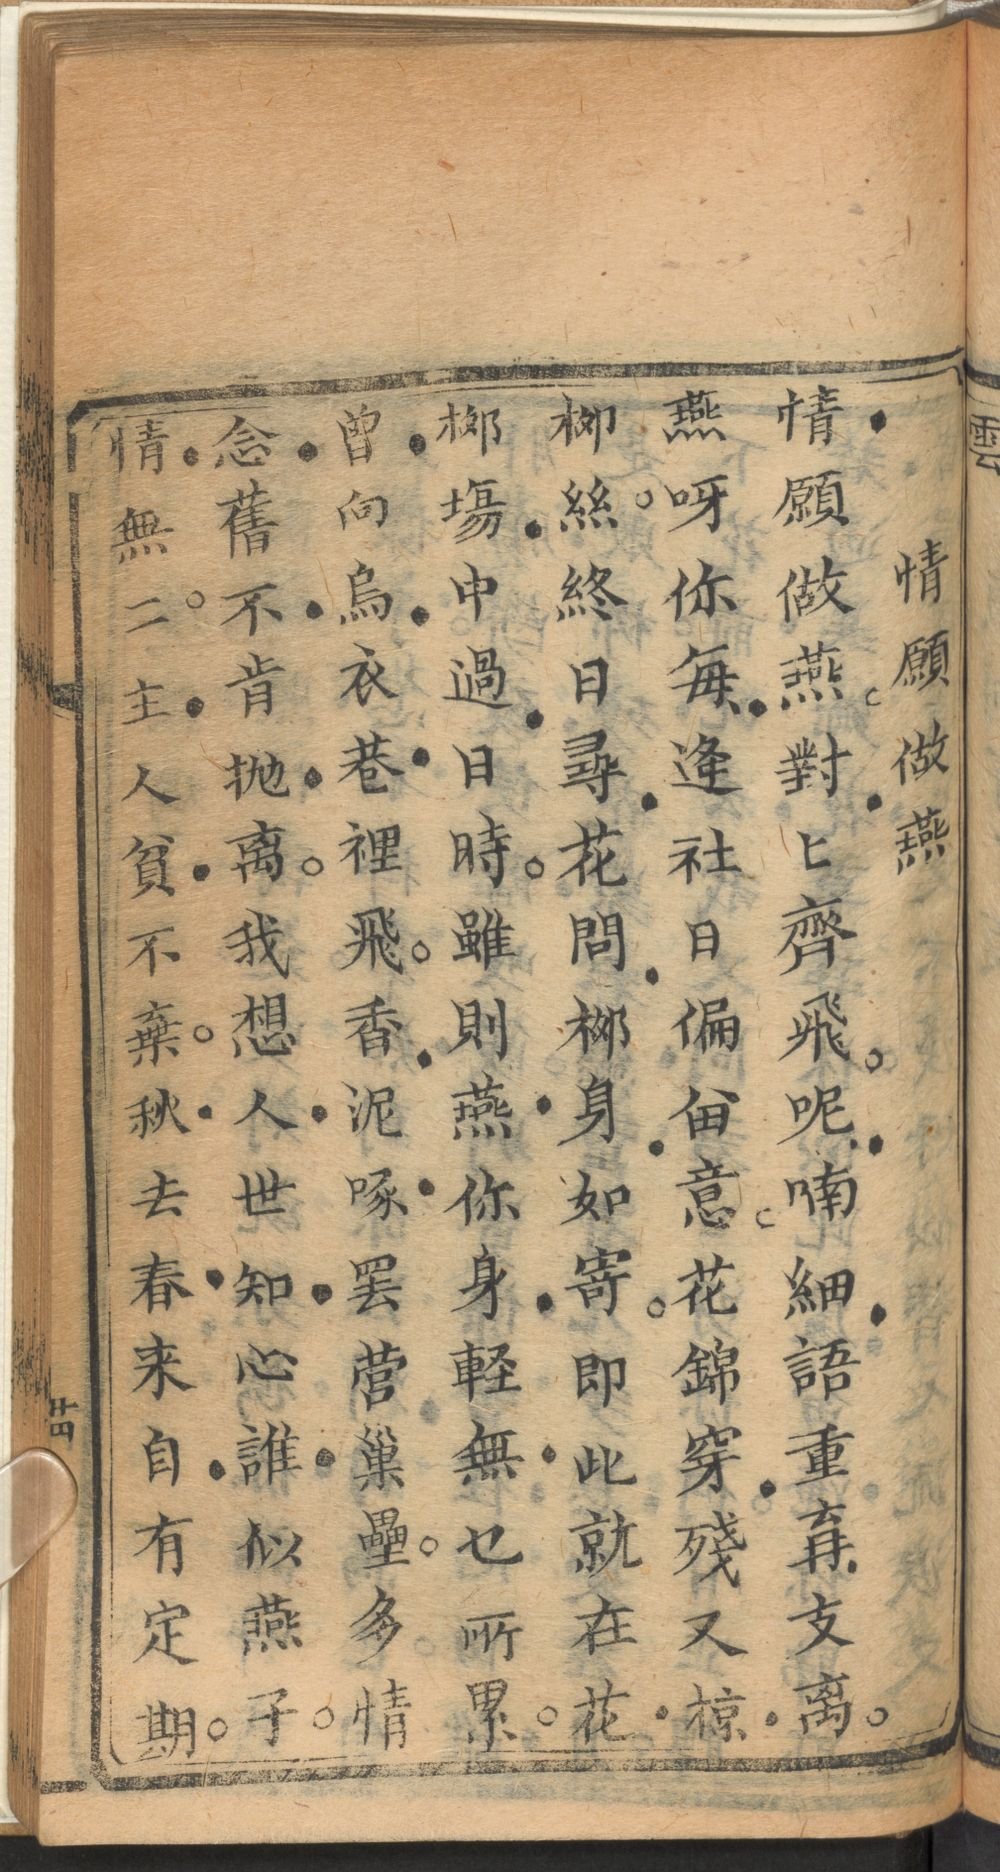 情願做燕
情願做燕。對匕齊飛。呢喃細語重再支离。
燕呀你每逢社日偏留意。花錦穿殘又掠
柳絲。終日尋花問柳身如寄。即此就在花
柳塲中過日時。雖則燕你身軽無乜所累。
曾向烏衣巷裡飛。香泥啄罢营巢壘。多情
念舊不肯拋离。我想人世知心誰似燕子。
情無二主人貧不棄。秋去春来自有定期。
十四
雲